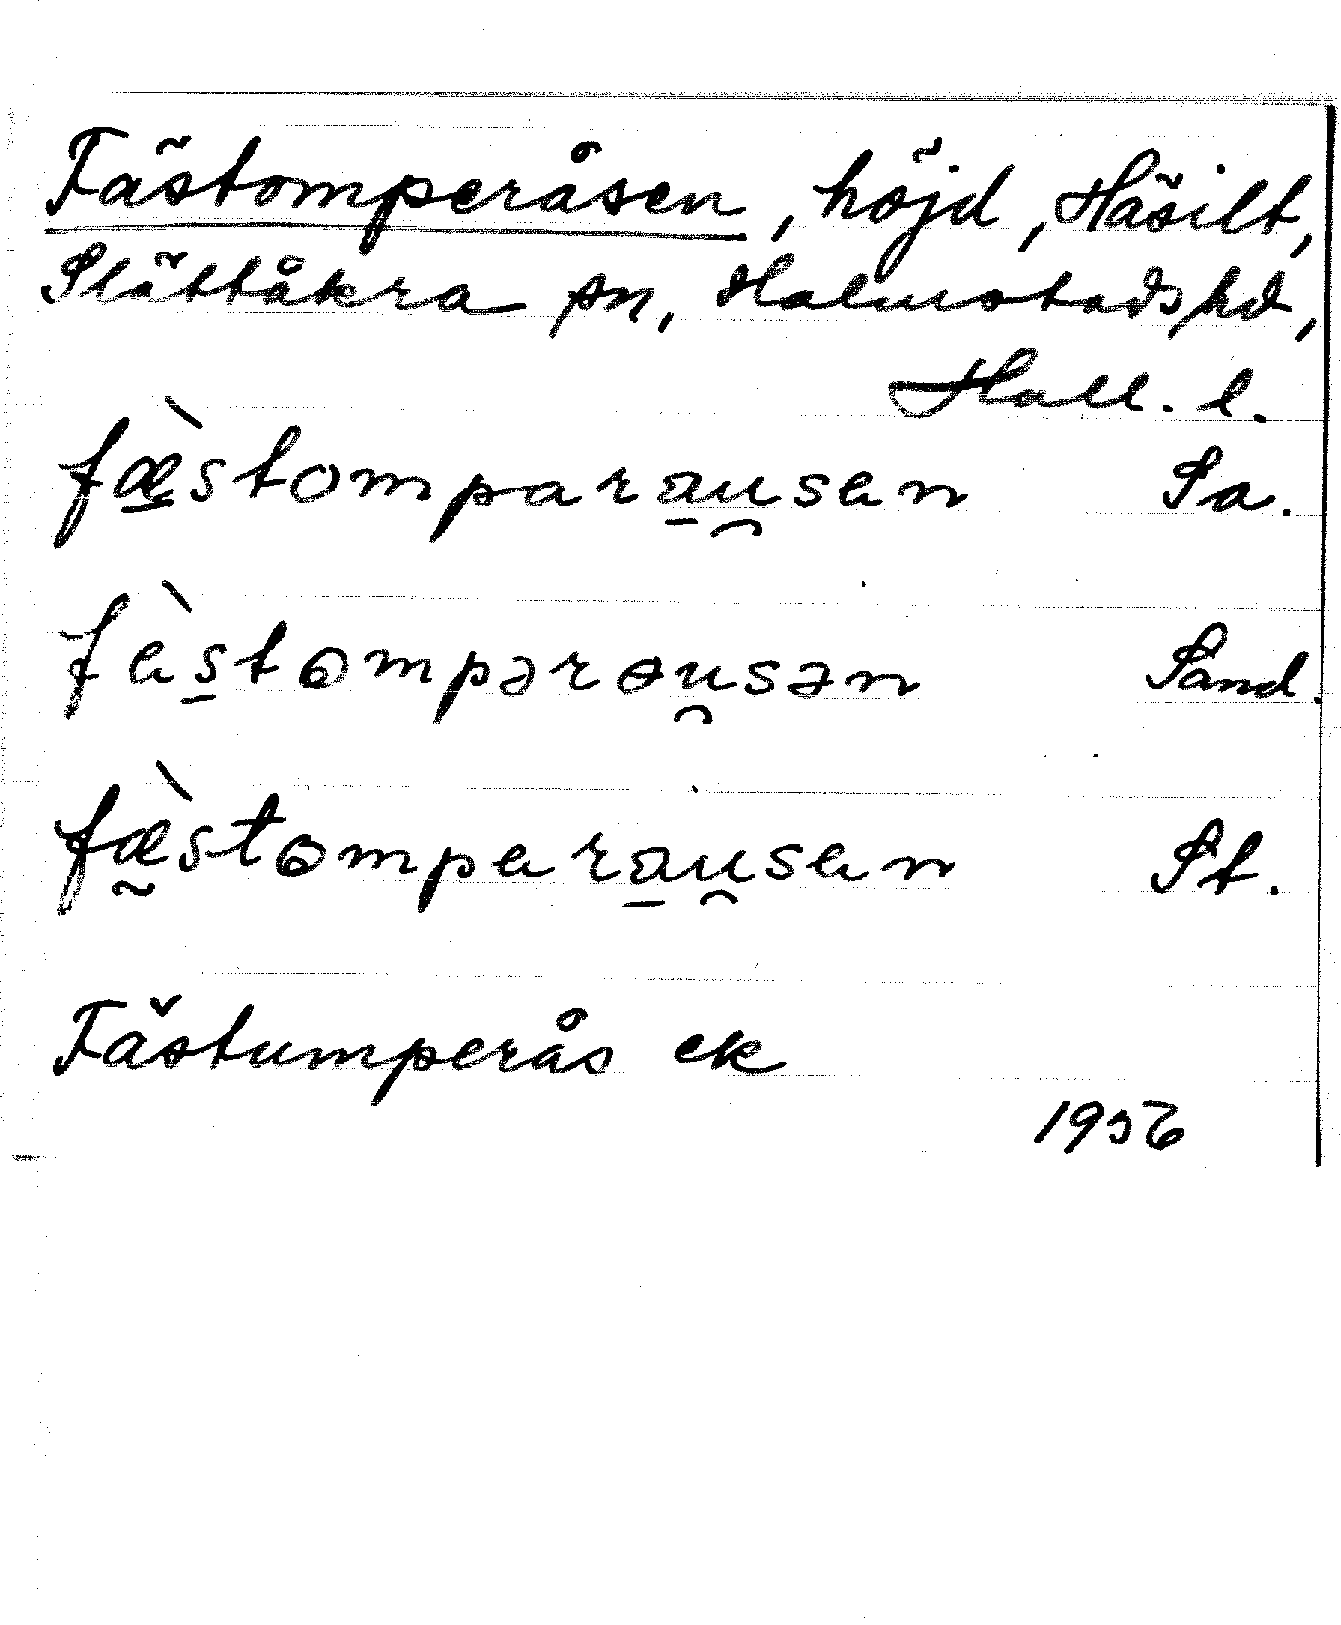 Fästomperåsen, höjd, Häsilt,
Slättåkra sn, Halmstads hd,
Hall. l.
fæ̱̀stompara̱u̯sen Sa.
fès̱tompərɵu̯sən Sand.
fæ̰̀stompera̱u̯sen St.
Fästumperås ek
1956